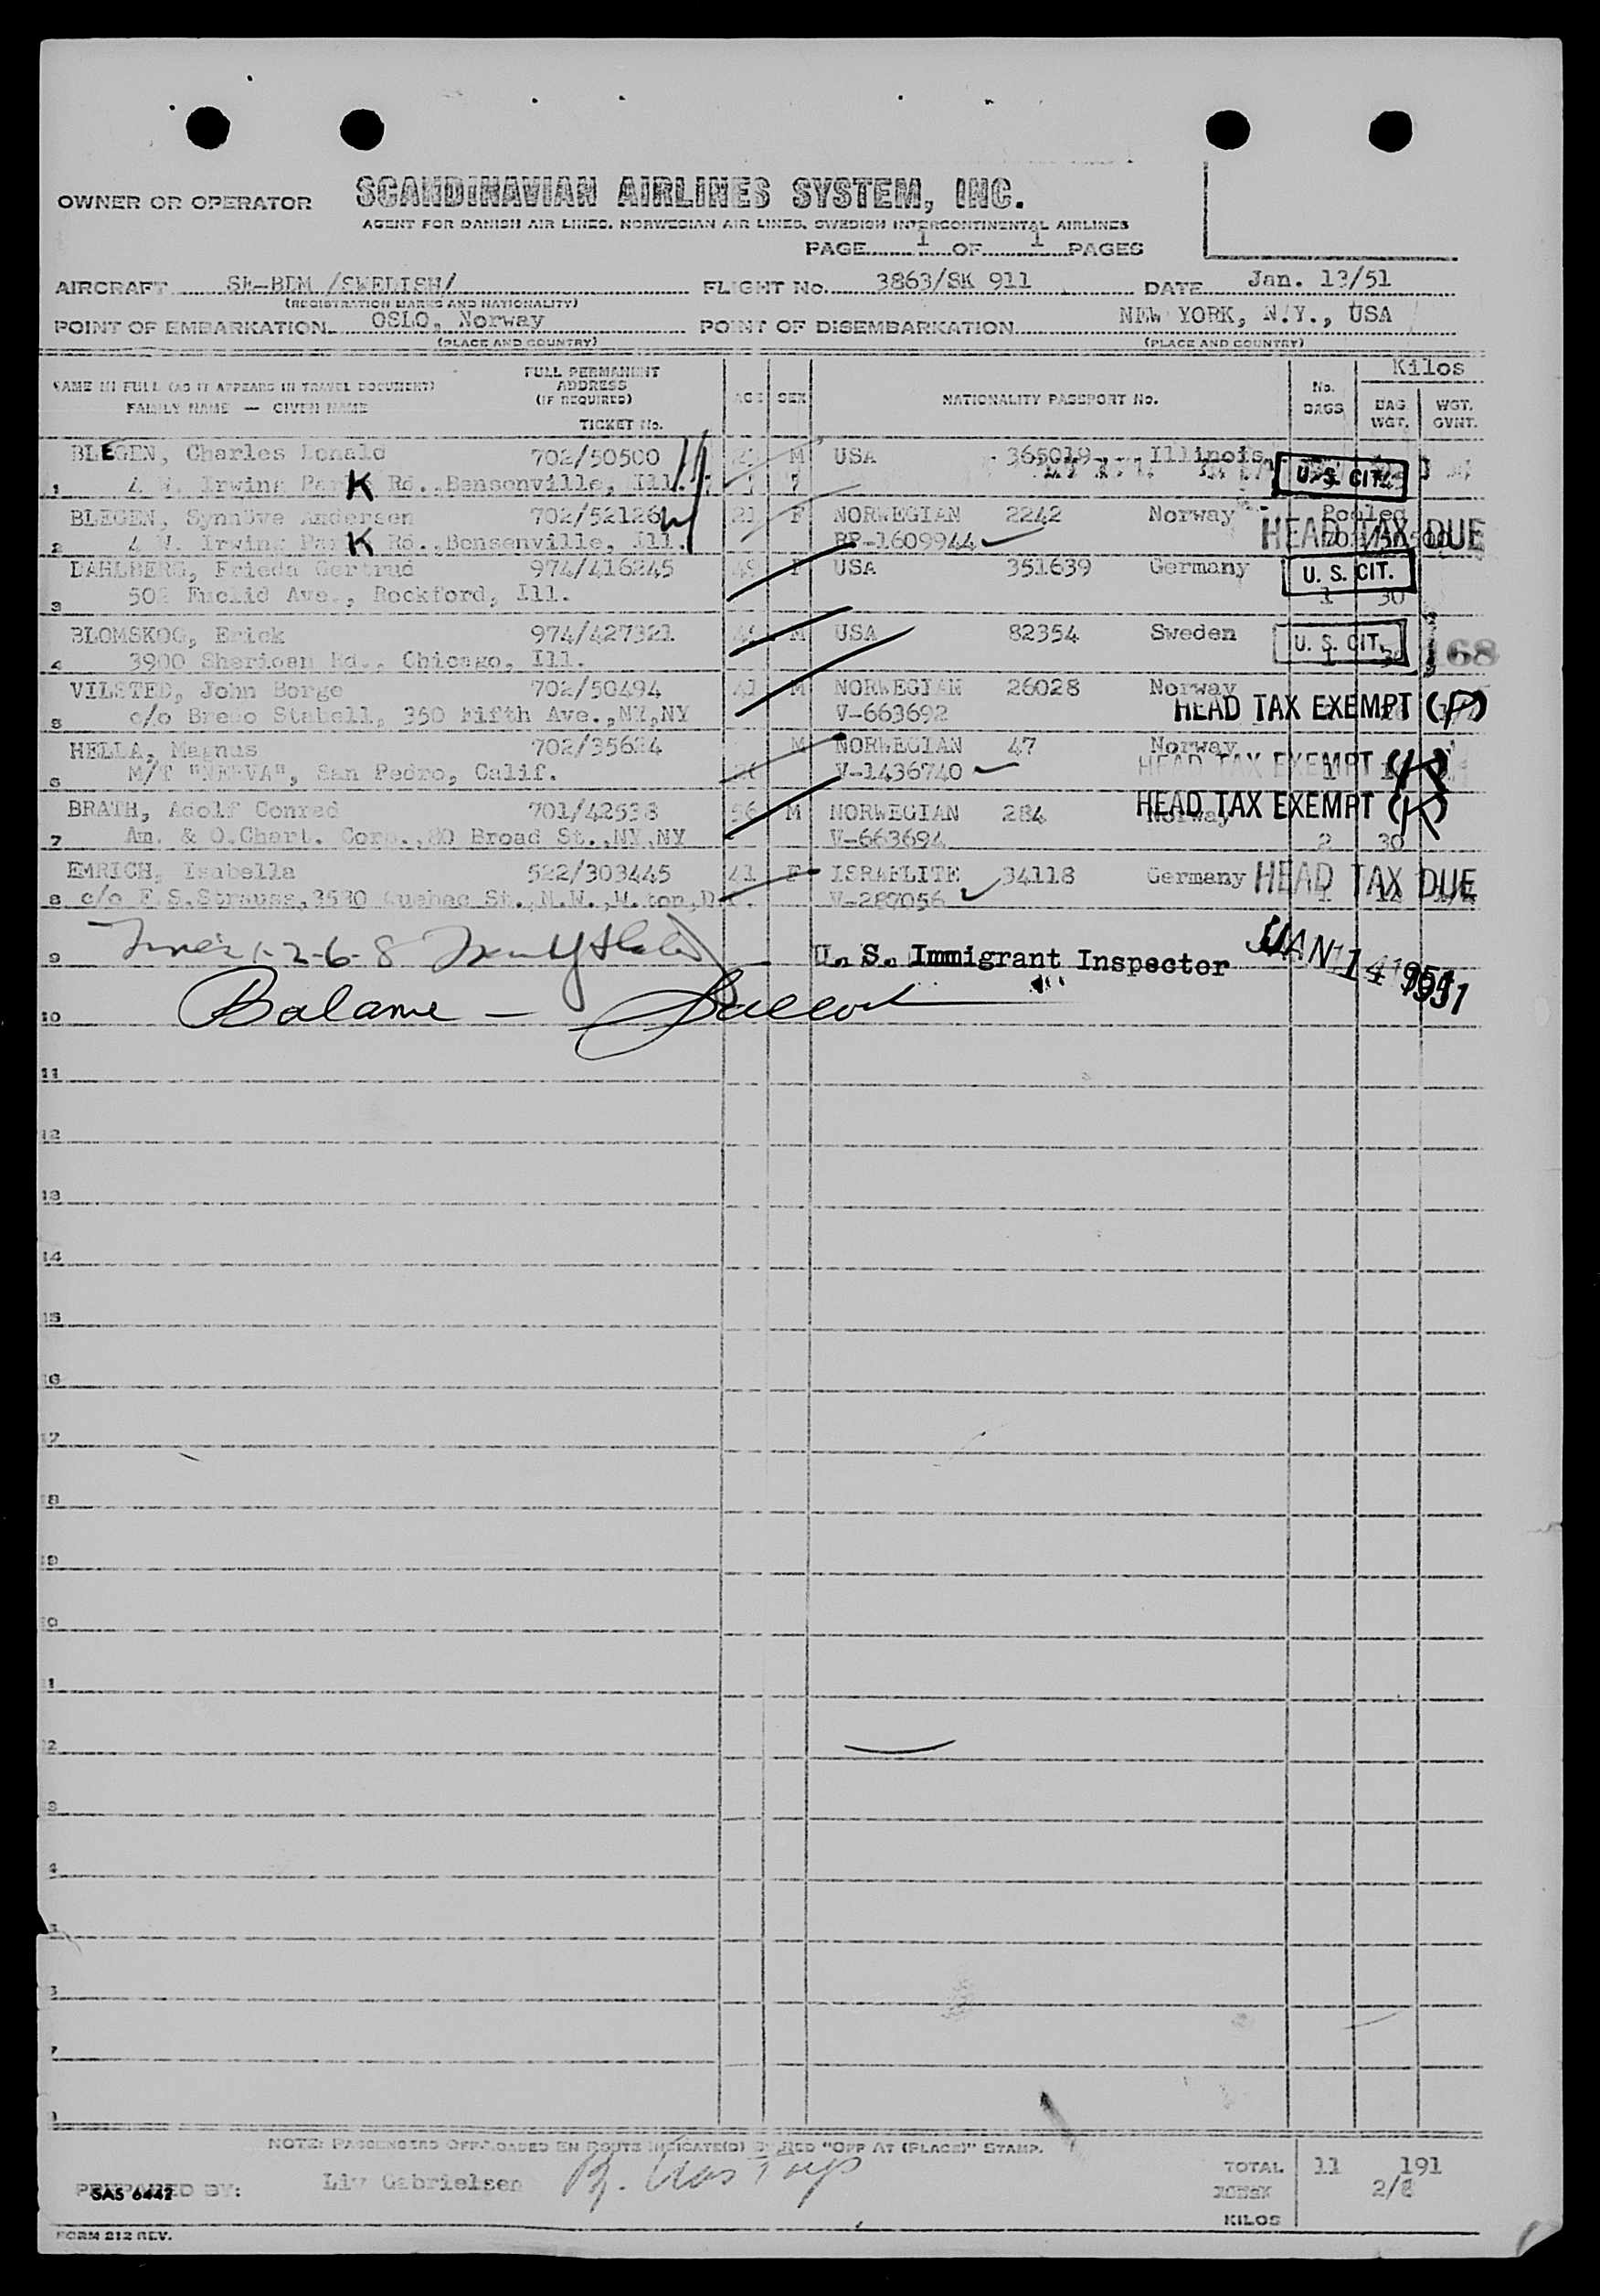 OWNER OR OPERATOR SCANDINAVIAN AIRLINES SYSTEM, INC.
AGENT FOR DANISH AIR LINES, NORWEGIAN AIR LINES, SWEDISH INTERCONTINENTAL AIRLINES
PAGE 1 OF 1 PAGES
AIRCRAFT SE-BDM /SWEDISH/ FLIGHT No. 3863/SK 911 DATE Jan. 13/51
(REGISTRATION MARKS AND NATIONALITY)
POINT OF EMBARKATION OSLO, Norway POINT OF DISEMBARKATION NEW YORK, N.Y., USA
(PLACE AND COUNTRY) (PLACE AND COUNTRY)
Kilos
NAME IN FULL (AS IT APPEARS IN TRAVEL DOCUMENT) FULL PERMANENT ADDRESS (IF REQUIRED) AGE SEX NATIONALITY PASSPORT No. No. BAGS BAG WGT. WGT. OVNT.
FAMILY NAME — GIVEN NAME
TICKET No.
BLEGEN, Charles Donald 702/50500 M USA 365019 Illinois
1 4 W. Irwing Park Rd., Bensonville, Ill. U. S. CIT.
BLEGEN, Synnöve Andersen 702/52126 21 F NORWEGIAN 2242 Norway Pooled
2 4 W. Irwing Park Rd., Bensonville, Ill. RP-1609944 HEAD TAX DUE
DAHLBERG, Frieda Gertrud 974/416245 49 F USA 351639 Germany U. S. CIT.
3 502 Euclid Ave., Rockford, Ill. 1 30
BLOMSKOG, Erick 974/427321 M USA 82354 Sweden U. S. CIT. 168
4 3900 Sheridan Rd., Chicago, Ill. 1 30
VILSTED, John Borge 702/50494 41 M NORWEGIAN 26028 Norway
5 c/o Brevo Stabell, 350 Fifth Ave.,NY,NY V-663692 HEAD TAX EXEMPT
HELLA, Magnus 702/35624 M NORWEGIAN 47 Norway
6 M/T "NERVA", San Pedro, Calif. V-1436740 HEAD TAX EXEMPT
BRATH, Adolf Conrad 701/42538 56 M NORWEGIAN 284 Norway HEAD TAX EXEMPT
7 Am. & O.Chart. Corp.,80 Broad St.,NY,NY V-663694 2 30
EMRICH, Isabella 522/303445 41 F ISRAELITE 34118 Germany HEAD TAX DUE
8 c/o F.S.Strauss,3530 Quebec St.,N.W.,W.ton,D.C. V-287056 1
9 1-2-6-8 U. S. Immigrant Inspector JAN 14 1951
10 Balance —
11
12
13
14
15
16
17
18
19
NOTE: PASSENGERS OFF-LOADED EN ROUTE INDICATE(D) BY RED "OFF AT (PLACE)" STAMP.
PREPARED BY: Liv Gabrielsen TOTAL 11 191
SAS 6442 2/8
KILOS
FORM 212 REV.